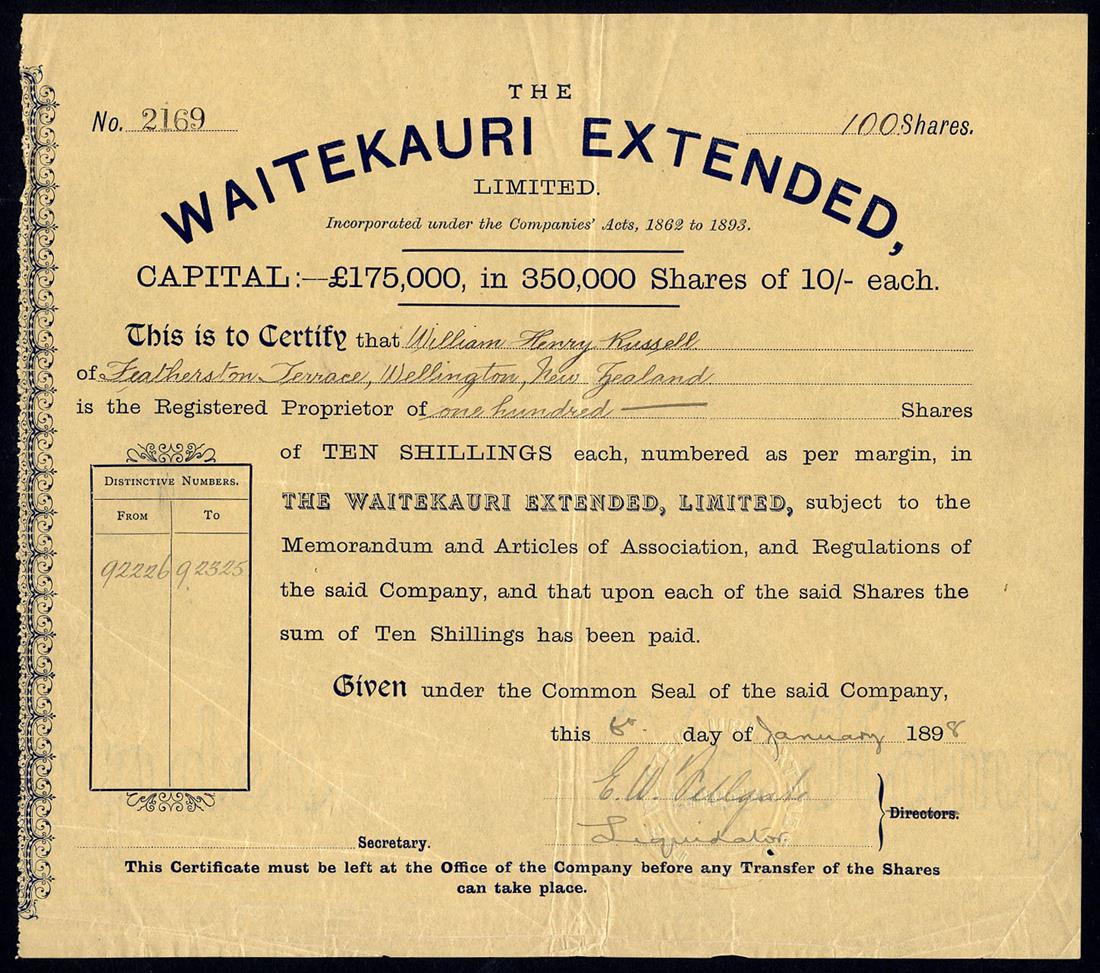 THE
No. 2169
100 Shares.
WAITEKAURI EXTENDED,
LIMITED.
Incorporated under the Companies' Acts, 1862 to 1893.
CAPITAL:—£175,000, in 350,000 Shares of 10/- each.
This is to Certify that William Henry Russell
of Featherston Terrace, Wellington, New Zealand
is the Registered Proprietor of one hundred Shares
of TEN SHILLINGS each, numbered as per margin, in
THE WAITEKAURI EXTENDED, LIMITED, subject to the
Memorandum and Articles of Association, and Regulations of
the said Company, and that upon each of the said Shares the
sum of Ten Shillings has been paid.
DISTINCTIVE NUMBERS.
FROM TO
92226 92325
Given under the Common Seal of the said Company,
this day of January 1898
E. W.
Liquidator.
Directors.
Secretary.
This Certificate must be left at the Office of the Company before any Transfer of the Shares
can take place.